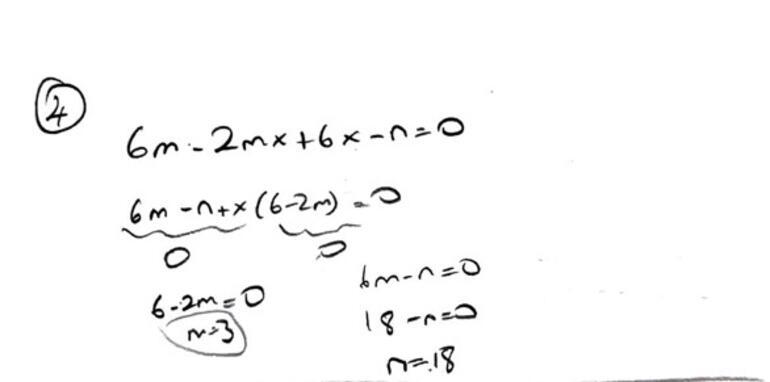 4
6m - 2mx + 6x - n = 0
6m - n + x (6 - 2m) = 0
0 0
6 - 2m = 0
m = 3
6m - n = 0
18 - n = 0
n = 18